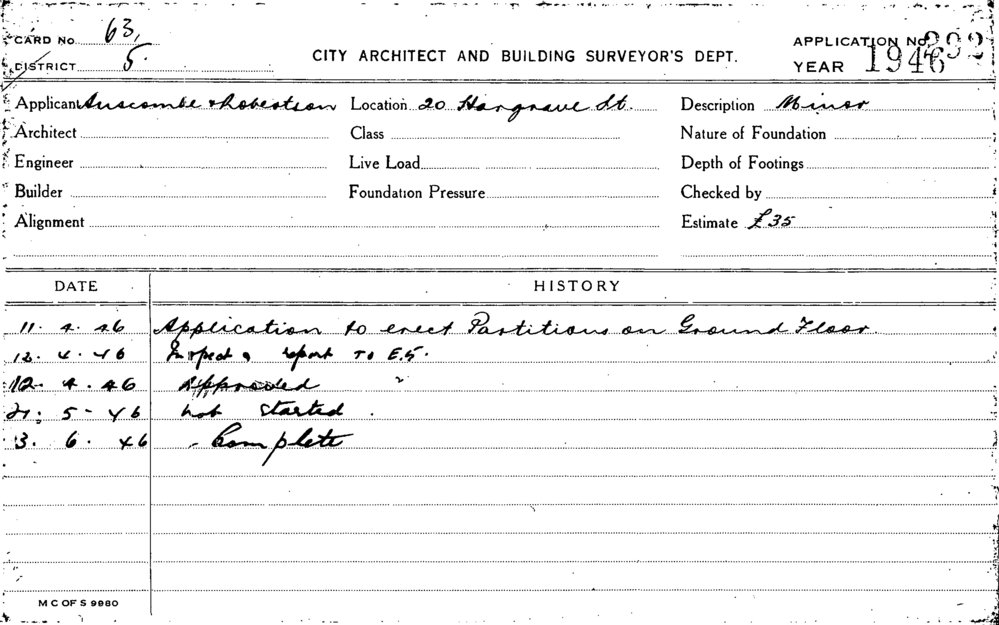 CARD No 63,
DISTRICT 5.
CITY ARCHITECT AND BUILDING SURVEYOR'S DEPT.
APPLICATION No 392
YEAR 1946
Applicant Anscombe & Robertson Location 20 Hargrave St. Description Minor
Architect Class Nature of Foundation
Engineer Live Load Depth of Footings
Builder Foundation Pressure Checked by
Alignment Estimate £35
DATE HISTORY
11. 4. 46 Application to erect Partitions on Ground Floor
12. 4. 46 Inspect & report TO E.5.
12. 4. 46 Approved
21. 5- 46 not started.
3. 6. 46 Complete
M C OF S 9980